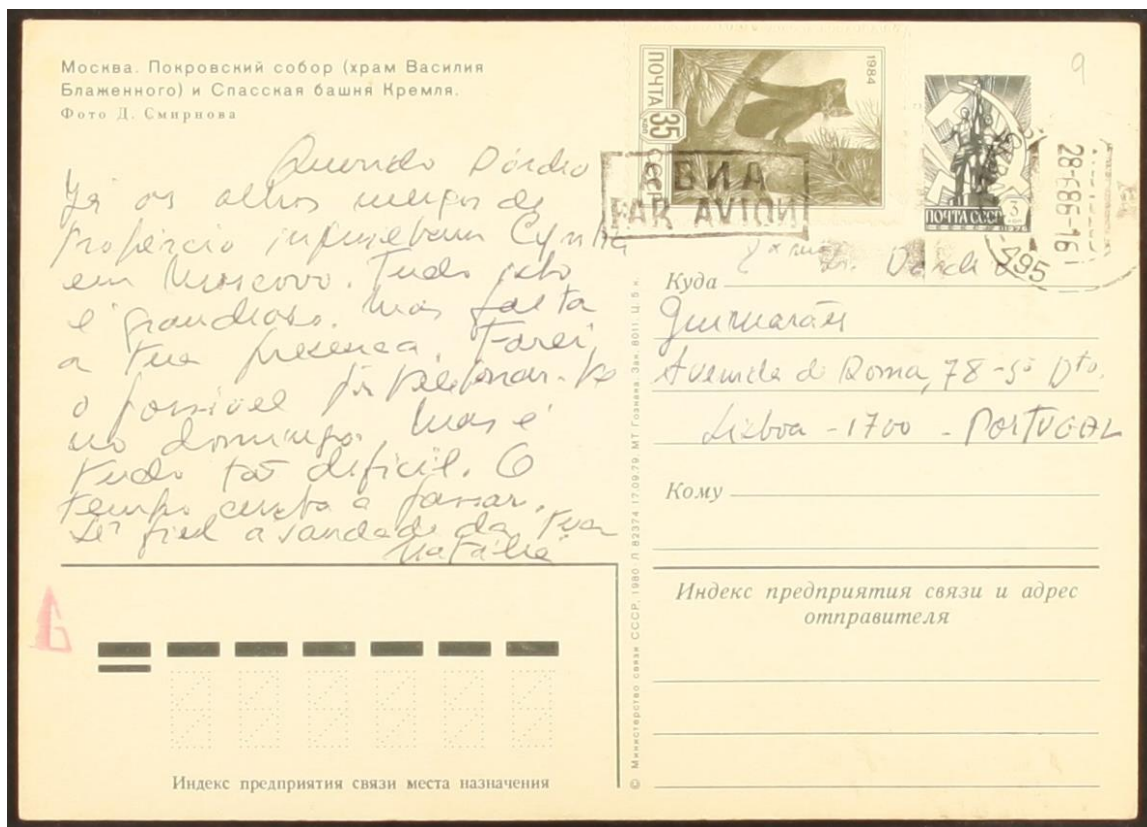 Москва. Покровский собор (храм Василия
Блаженного) и Спасская башня Кремля.
Фото Д. Смирнова
Querido Dórdio
Já os olhos meigos de
Propércio
em Moscovo. Tudo isto
é grandioso. Mas falta
a tua presença. Farei
o possível p'a telefonar-te
no domingo. Mas é
tudo tão difícil. O
tempo custa a passar.
Sê fiel à saudade da tua
Natália
1984
ПОЧТА
35
КОП
СССР
АВИА
PAR AVION
ПОЧТА СССР
3
КОП
1976
28-6.86-16
395
9
Куда
Guimarães
Avenida de Roma, 78-5º Dto.
Lisboa - 1700 - PORTUGAL
Кому
Индекс предприятия связи и адрес
отправителя
Индекс предприятия связи места назначения
© Министерство связи СССР, 1980 Л 82374 17.09.79. МТ Гознака. Зак. 8011. Ц. 5 к.